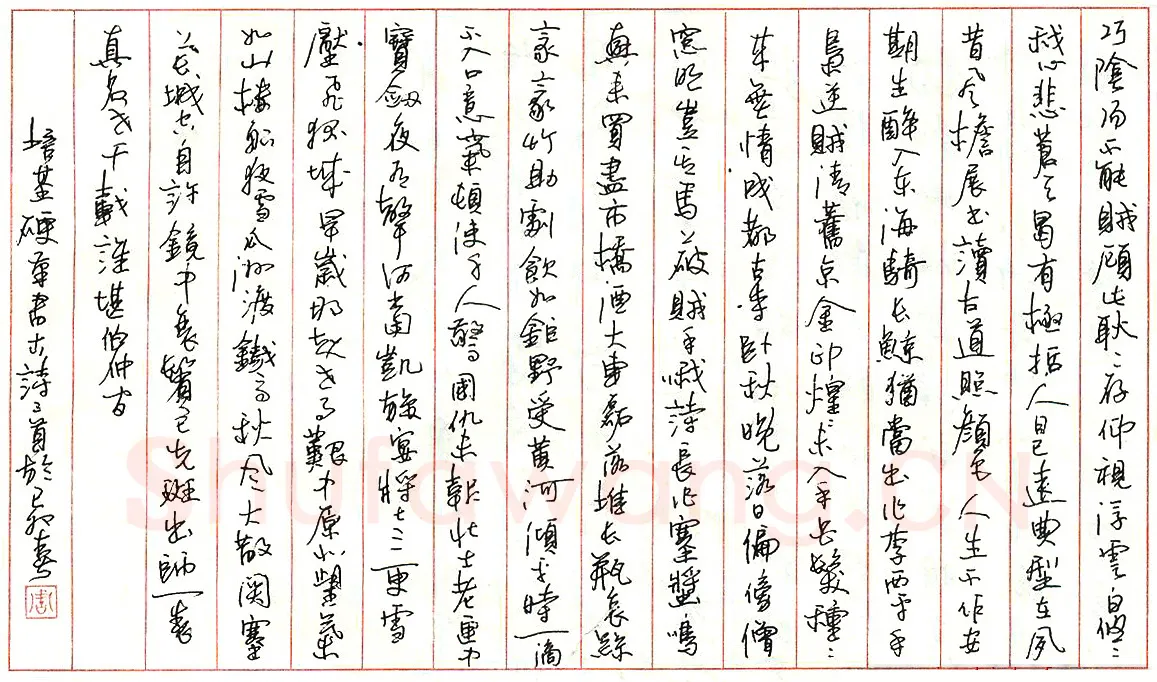 巧陰陽不能賊顧此耿〻存仰視浮雲白悠〻
我心悲蒼天曷有極哲人日已遠典型在夙
昔風檐展書讀古道照顏色人生不作安
期生醉入東海騎長鯨猶當出作李西平手
梟逆賊清舊京金印煌〻未入手白髮種〻
來無情成都古寺臥秋晚落日偏傍僧
窓明豈其馬上破賊手哦詩長作寒螿鳴
興來買盡市橋酒大車磊落堆長瓶哀絲
豪竹助劇飲如鉅野受黃河傾平時一滴
不入口意氣頓使千人驚國仇未報壯士老匣中
寶劍夜有聲何當凱旋宴將士三更雪
壓飛狐城早歲那知世事艱中原北望氣
如山樓船夜雪瓜洲渡鐵馬秋風大散関塞
上長城空自許鏡中衰鬢已先斑出師一表
真名世千載誰堪伯仲间
培基硬筆書古詩三首於己卯春
Shufawang.CN